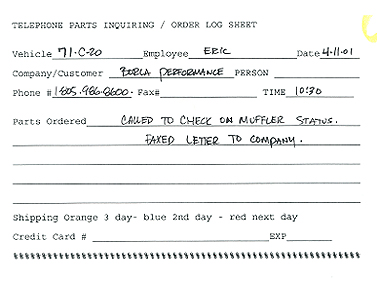 TELEPHONE PARTS INQUIRING / ORDER LOG SHEET
Vehicle 71-C-20 Employee ERIC Date 4-11-01
Company/Customer BORLA PERFORMANCE PERSON
Phone # 1-805-986-8600 Fax# TIME 10:30
Parts Ordered CALLED TO CHECK ON MUFFLER STATUS.
FAXED LETTER TO COMPANY.
Shipping Orange 3 day- blue 2nd day - red next day
Credit Card # EXP